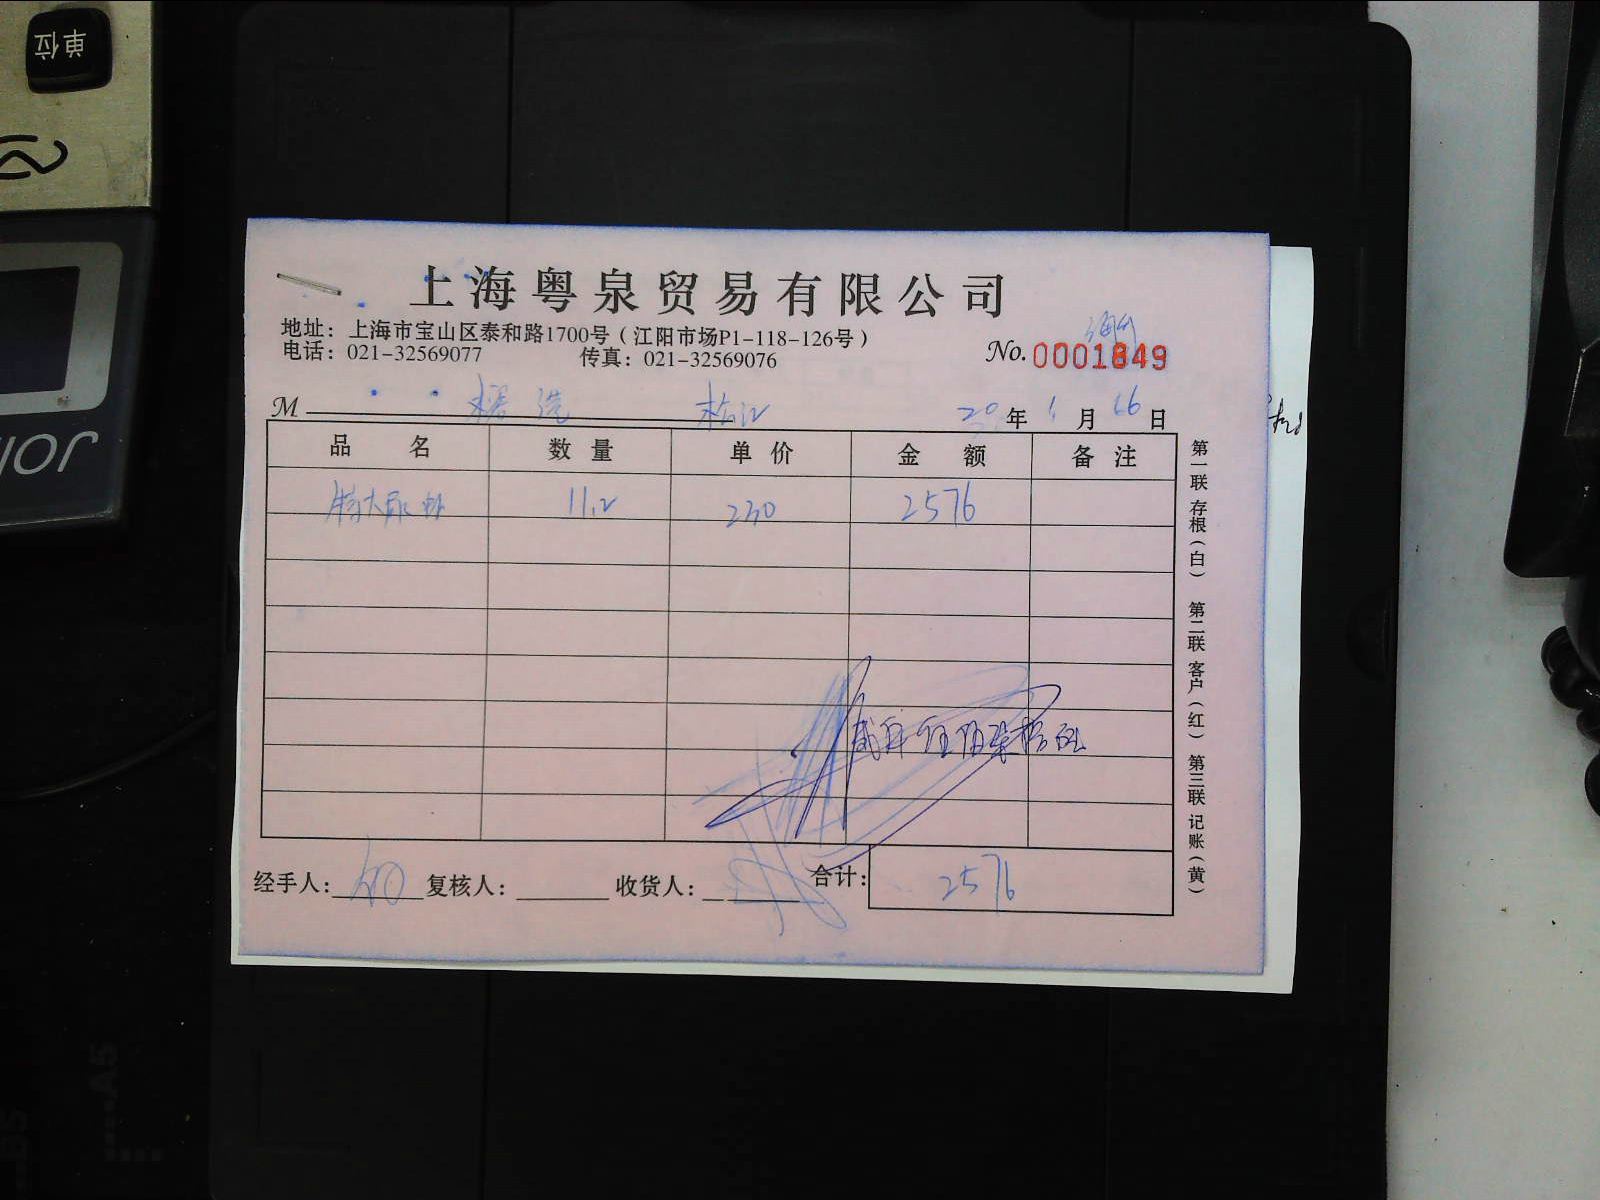 单位
上海粤泉贸易有限公司
地址：上海市宝山区泰和路1700号（江阳市场P1-118-126号）
电话：021-32569077 传真：021-32569076
No. 0001849
M 松江 20年1月16日
品名 数量 单价 金额 备注
11.2 230 2576
第一联 存根（白） 第二联 客户（红） 第三联 记账（黄）
经手人： 复核人： 收货人： 合计： 2576